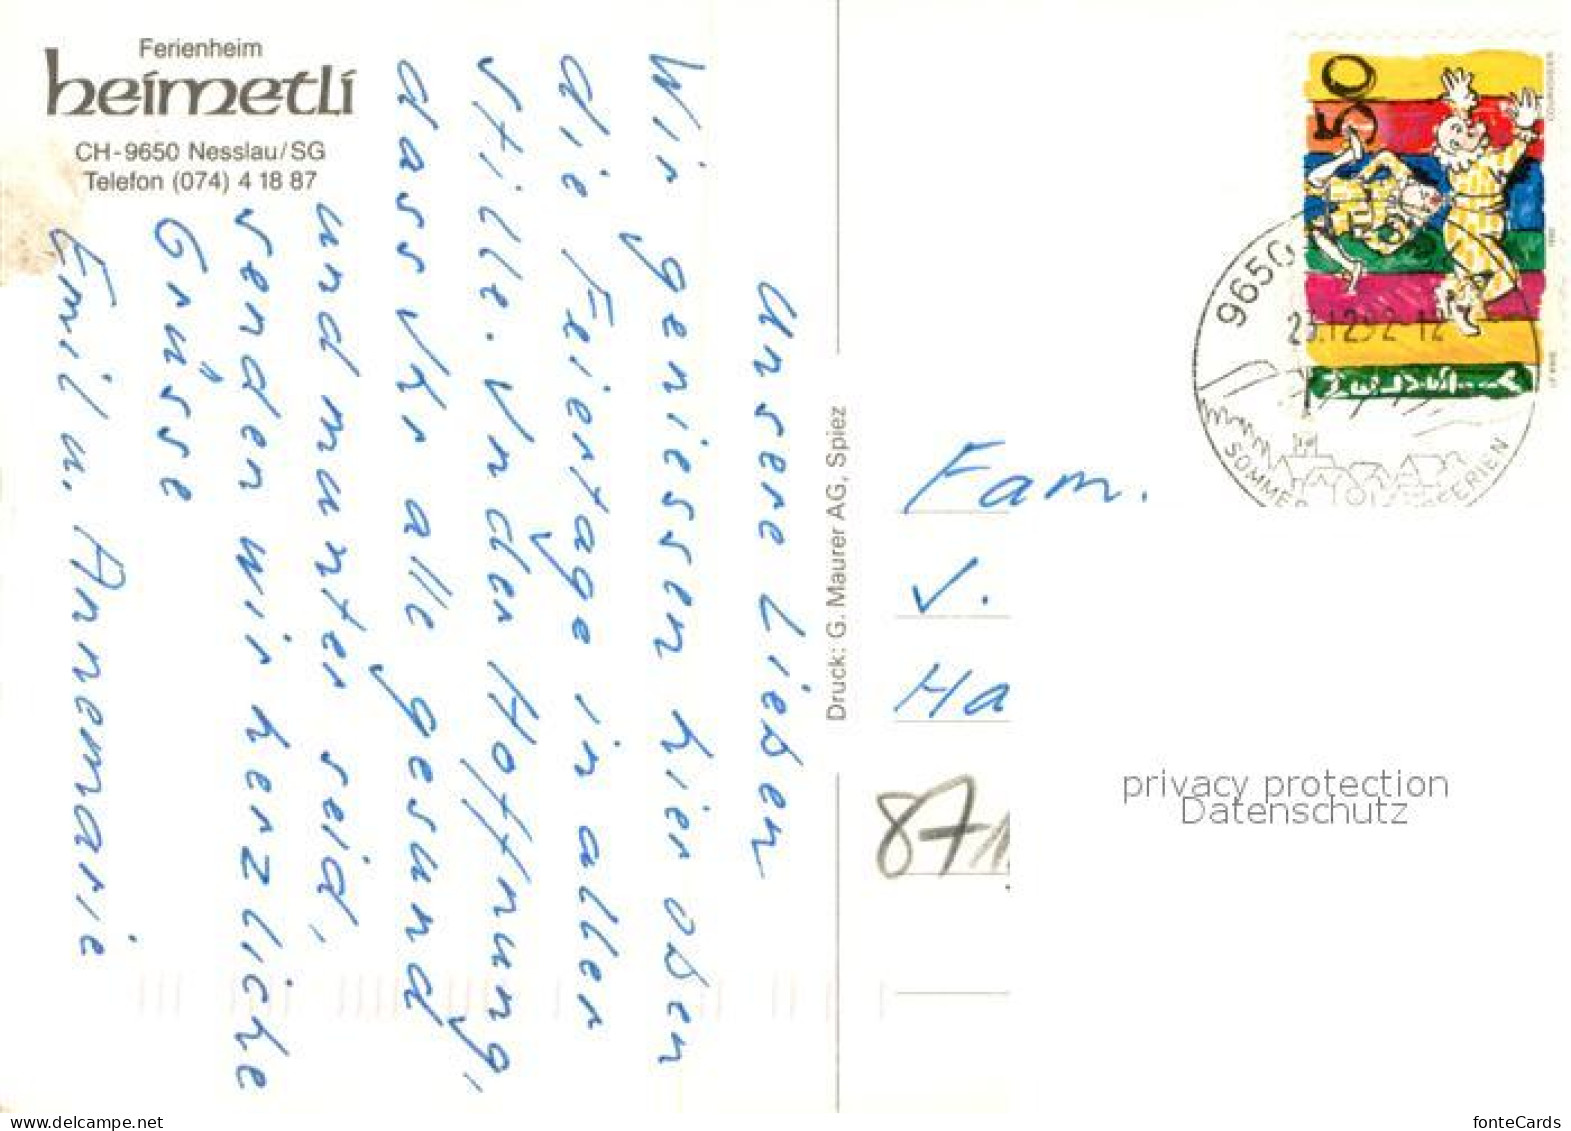 Ferienheim
heimetli
CH-9650 Nesslau/SG
Telefon (074) 4 18 87
Unsere Lieben
Wir geniessen hier oben
die Feiertage in aller
Stille. In der Hoffnung,
dass Ihr alle gesund
und munter seid,
senden wir herzliche
Grüsse
Emil u. Annemarie
Druck: G. Maurer AG, Spiez
50
HELVETIA
9650
23.12.92-12
SOMMER
FERIEN
Fam.
J.
Ha
871
privacy protection
Datenschutz
my.delcampe.net
fonteCards